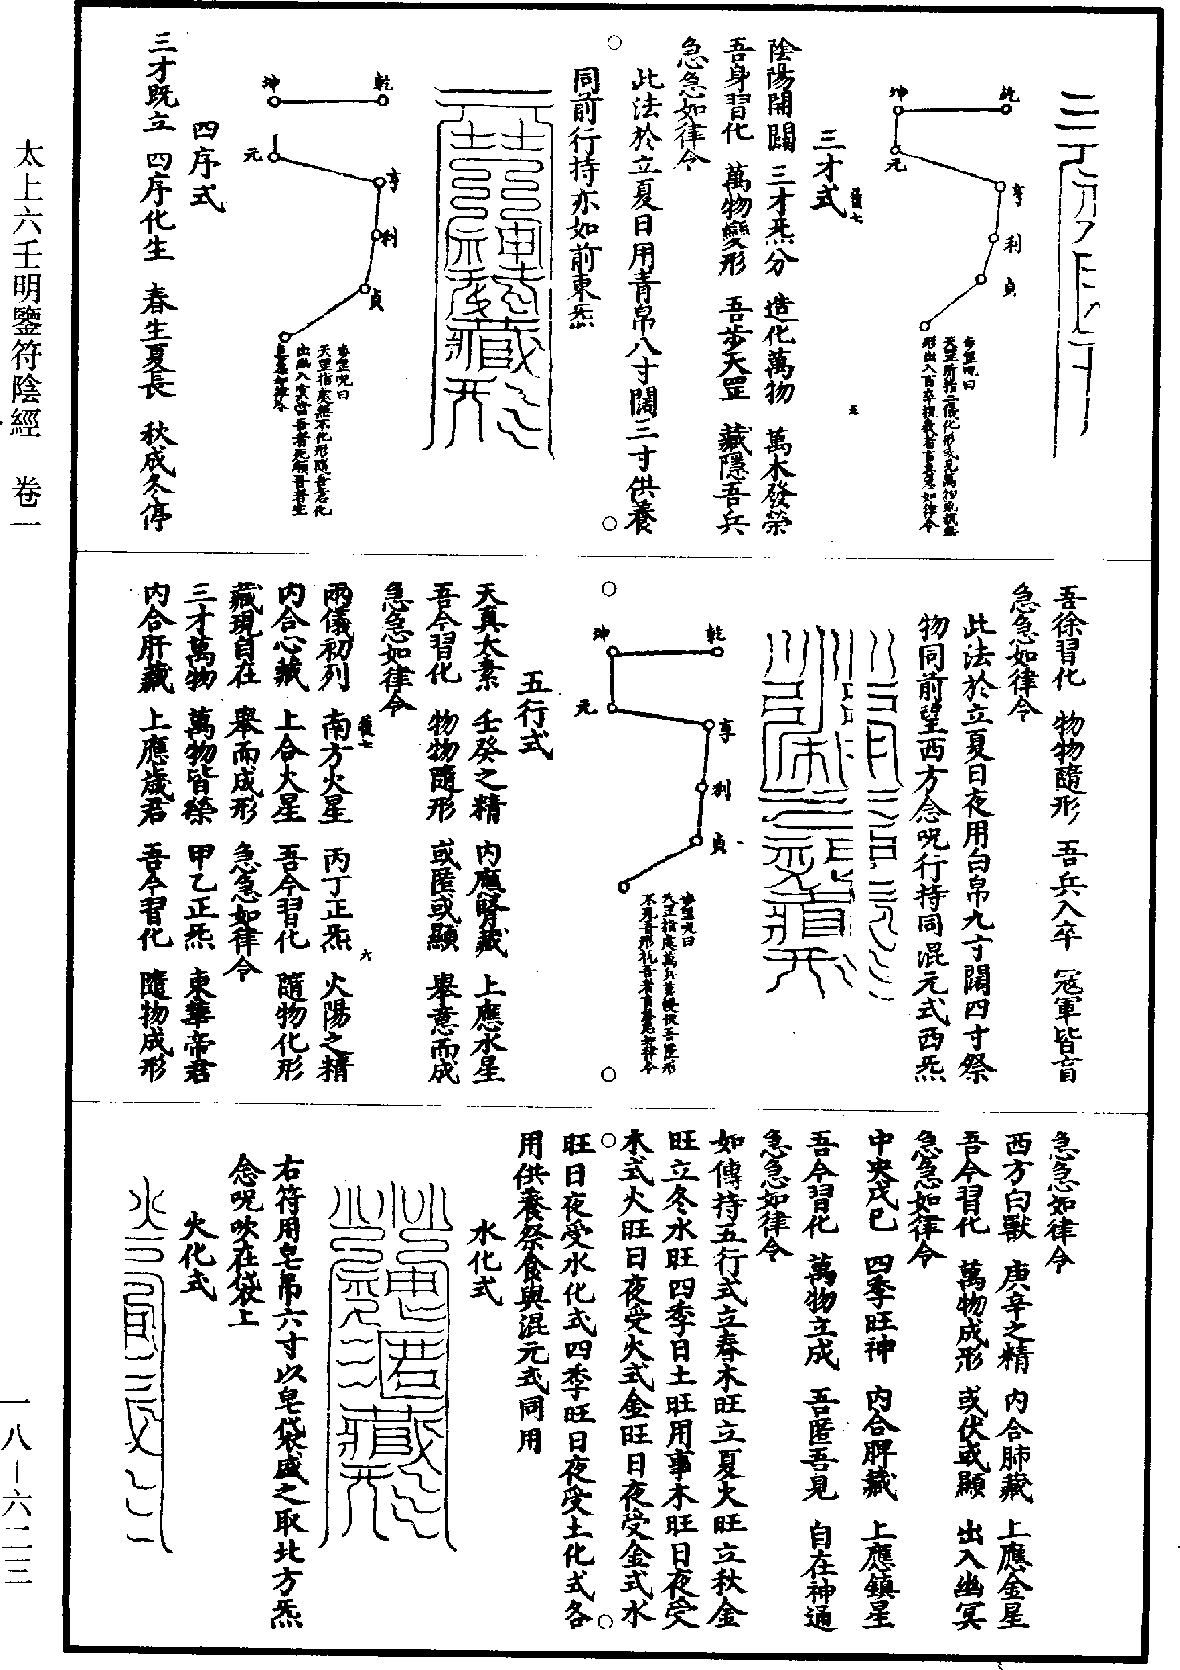 太上六壬明鑒符陰經　卷一
一八－六二三
乾
坤
元
亨
利
貞
步罡呪曰
三才式
陰陽開闢　三才炁分　造化萬物　萬木發榮
吾身習化　萬物變形　吾步天罡　藏隱吾兵
急急如律令
此法於立夏日用青帛八寸闊三寸供養
同前行持亦如前東炁
乾
坤
元
亨
利
貞
步罡呪曰
四序式
三才既立　四序化生　春生夏長　秋成冬停
吾徐習化　物物隨形　吾兵入卒　冦軍皆盲
急急如律令
此法於立夏日夜用白帛九寸闊四寸祭
物同前望西方念呪行持同混元式西炁
乾
坤
元
亨
利
貞
步罡呪曰
五行式
天真太素　壬癸之精　内應腎藏　上應水星
吾今習化　物物隨形　或匿或顯　舉意而成
急急如律令
兩儀初列　南方火星　丙丁正炁　火陽之精
内合心藏　上合火星　吾今習化　隨物化形
藏現自在　舉而成形　急急如律令
三才萬物　萬物皆榮　甲乙正炁　東華帝君
内合肝藏　上應歲君　吾今習化　隨物成形
急急如律令
西方白獸　庚辛之精　内合肺藏　上應金星
吾今習化　萬物成形　或伏或顯　出入幽冥
急急如律令
中央戊巳　四季旺神　内合脾藏　上應鎮星
吾今習化　萬物立成　吾匿吾見　自在神通
急急如律令
如傳持五行式立春木旺立夏火旺立秋金
旺立冬水旺四季日土旺用事木旺日夜受
木式火旺日夜受火式金旺日夜受金式水
旺日夜受水化式四季旺日夜受土化式各
用供養祭食與混元式同用
水化式
右符用皂帛六寸以皂袋盛之取北方炁
念呪吹在袋上
火化式